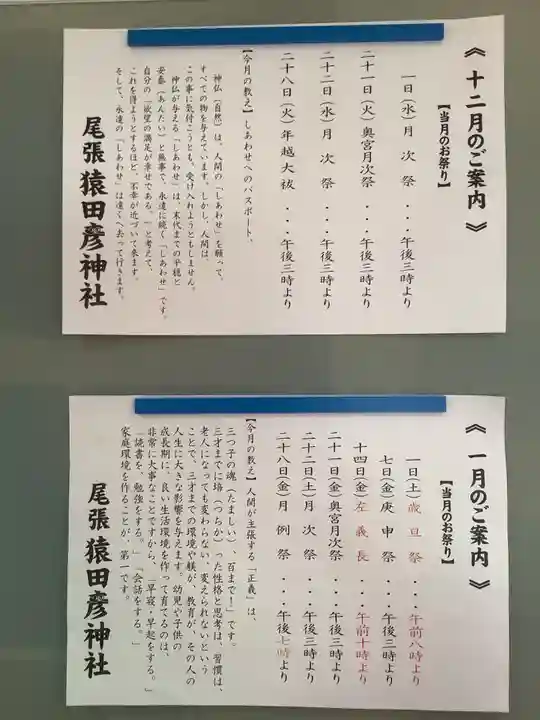 《 十二月のご案内 》
【当月のお祭り】
一日(水)月次祭・・・午後三時より
二十一日(火)奥宮月次祭・・・午後三時より
二十二日(水)月次祭・・・午後三時より
二十八日(火)年越大祓・・・午後三時より
【今月の教え】しあわせへのパスポート、
神仏(自然)は、人間の「しあわせ」を願って、
すべての物を与えています。しかし、人間は、
この事に気付こうとも、受け入れようともしません。
神仏が与える「しあわせ」は、末代までの平穏と
安泰(あんたい)と無事で、永遠に続く「しあわせ」です。
自分の「欲望の満足が幸せである。」と考えて、
これを得ようとするほど、不幸が近づいて来ます。
そして、永遠の「しあわせ」は遠くへ去って行きます。
尾張猿田彦神社
《 一月のご案内 》
【当月のお祭り】
一日(土)歳旦祭・・・午前八時より
七日(金)庚申祭・・・午後三時より
十四日(金)左義長・・・午前十時より
二十一日(金)奥宮月次祭・・・午後三時より
二十二日(土)月次祭・・・午後三時より
二十八日(金)月例祭・・・午後七時より
【今月の教え】人間が主張する「正義」は、
三つ子の魂(たましい)、百まで!」です。
三才までに培(つちか)った性格と思考は、習慣は、
老人になっても変わらない、変えられないという
ことで、三才までの環境や躾が、教育が、その人の
人生に大きな影響を与えます。幼児や子供の
成長期に、良い生活環境を作って育てるのは、
非常に大事なことですから、「早寝・早起をする。」
「読書を、勉強をする。」「会話をする。」
家庭環境を作ることが、第一です。
尾張猿田彦神社